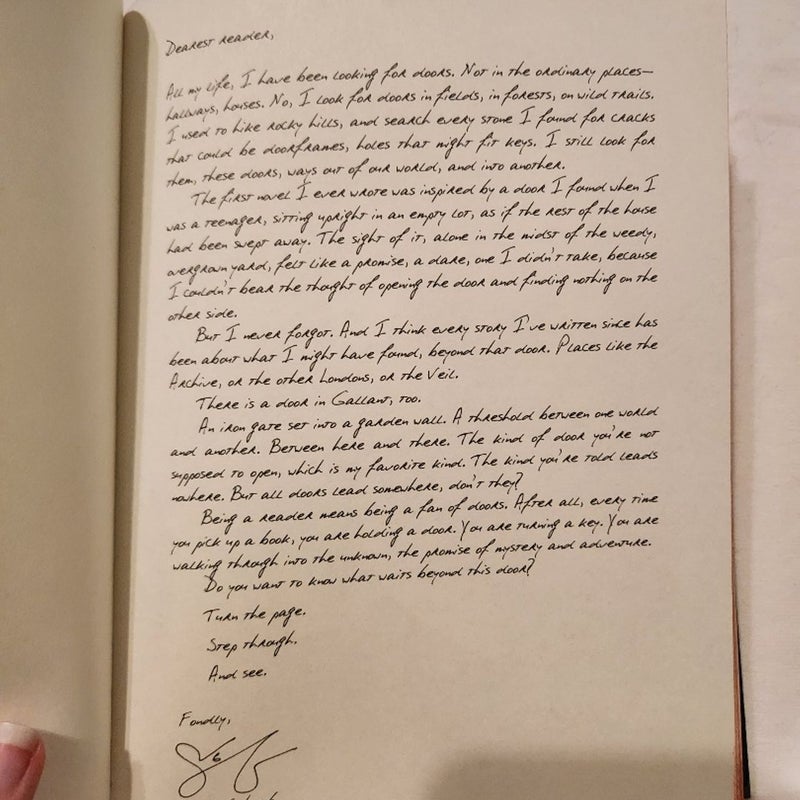 Dearest reader,
All my life, I have been looking for doors. Not in the ordinary places—
hallways, houses. No, I look for doors in fields, in forests, on wild trails.
I used to hike rocky hills, and search every stone I found for cracks
that could be doorframes, holes that might fit keys. I still look for
them, these doors, ways out of our world, and into another.
The first novel I ever wrote was inspired by a door I found when I
was a teenager, sitting upright in an empty lot, as if the rest of the house
had been swept away. The sight of it, alone in the midst of the weedy,
overgrown yard, felt like a promise, a dare, one I didn't take, because
I couldn't bear the thought of opening the door and finding nothing on the
other side.
But I never forgot. And I think every story I've written since has
been about what I might have found, beyond that door. Places like the
Archive, or the other Londons, or the Veil.
There is a door in Gallant, too.
An iron gate set into a garden wall. A threshold between one world
and another. Between here and there. The kind of door you're not
supposed to open, which is my favorite kind. The kind you're told leads
nowhere. But all doors lead somewhere, don't they?
Being a reader means being a fan of doors. After all, every time
you pick up a book, you are holding a door. You are turning a key. You are
walking through into the unknown, the promise of mystery and adventure.
Do you want to know what waits beyond this door?
Turn the page.
Step through.
And see.
Fondly,